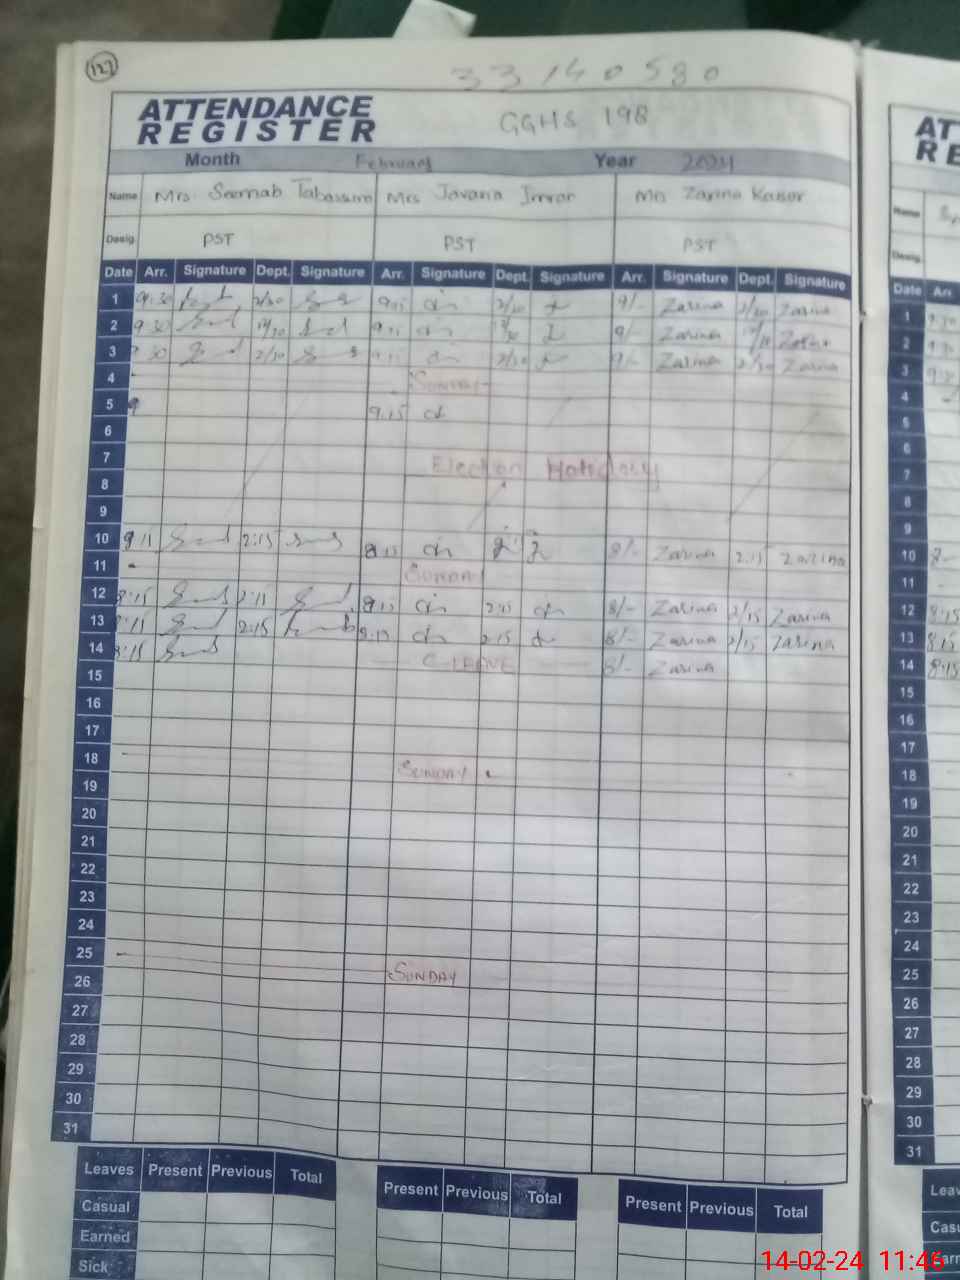 127
33140580
ATTENDANCE
REGISTER
GGHS 198
Month February Year 2024
Name Mrs. Seemab Tabassum Mrs Javaria Imran Mrs Zarina Kausar
Desig. PST PST PST
Date Arr. Signature Dept. Signature Arr. Signature Dept. Signature Arr. Signature Dept. Signature
1 9:30 2/30 9:15 2/30 9/- Zarina 2/30 Zarina
2 9:30 12/30 9:15 12/30 9/- Zarina Zarina
3 30 2/30 9:15 2/30 9/- Zarina 2/30 Zarina
4 SUNDAY
5 9.15
6
7 Election Holidays
8
9
10 8:15 2:15 8:15 8/- Zarina 2:15 Zarina
11 SUNDAY
12 8:15 2:15 8:15 2:15 8/- Zarina 2/15 Zarina
13 8:15 2:15 8:15 2:15 8/- Zarina 2/15 Zarina
14 8:15 C-LEAVE 8/- Zarina
15
16
17
18 SUNDAY
19
20
21
22
23
24
25 SUNDAY
26
27
28
29
30
31
Leaves Present Previous Total Present Previous Total Present Previous Total
Casual
Earned
Sick
AT
RE
Name
Desig.
Date Arr
1 9:30
2 9:30
3 9:30
4
5
6
7
8
9
10 8
11
12 8:15
13 8:15
14 8:15
15
16
17
18
19
20
21
22
23
24
25
26
27
28
29
30
31
Leav
Casu
Earn
14-02-24 11:46